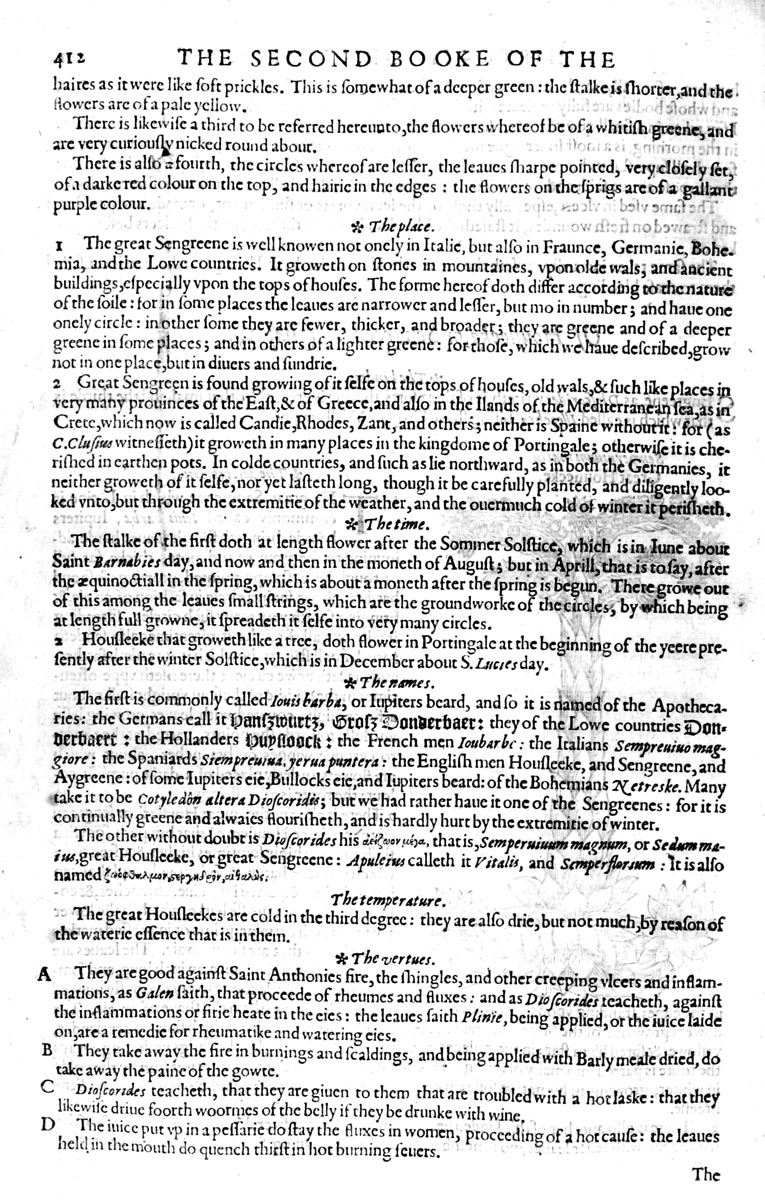 412 THE SECOND BOOKE OF THE
haires as it were like ſoft prickles. This is ſomewhat of a deeper green : the ſtalke is ſhorter, and the
flowers are of a pale yellow.
There is likewiſe a third to be referred hereunto, the flowers whereof be of a whitiſh greene, and
are very curiouſly nicked round about.
There is alſo a fourth, the circles whereof are leſſer, the leaues ſharpe pointed, very cloſely ſet,
of a darke red colour on the top, and hairie in the edges : the flowers on the ſprigs are of a gallant
purple colour.
✻ The place.
1 The great Sengreene is well knowen not onely in Italie, but alſo in Fraunce, Germanie, Bohe-
mia, and the Lowe countries. It groweth on ſtones in mountaines, vpon olde wals, and ancient
buildings, eſpecially vpon the tops of houſes. The forme hereof doth differ according to the nature
of the ſoile : for in ſome places the leaues are narrower and leſſer, but mo in number ; and haue one
onely circle : in other ſome they are fewer, thicker, and broader ; they are greene and of a deeper
greene in ſome places ; and in others of a lighter greene : for thoſe, which we haue deſcribed, grow
not in one place, but in diuers and ſundrie.
2 Great Sengreen is found growing of it ſelfe on the tops of houſes, old wals, & ſuch like places in
very many prouinces of the Eaſt, & of Greece, and alſo in the Ilands of the Mediterranean ſea, as in
Crete, which now is called Candie, Rhodes, Zant, and others ; neither is Spaine without it : for (as
C. Cluſius witneſſeth) it groweth in many places in the kingdome of Portingale ; otherwiſe it is che-
riſhed in earthen pots. In colde countries, and ſuch as lie northward, as in both the Germanies, it
neither groweth of it ſelfe, nor yet laſteth long, though it be carefully planted, and diligently loo-
ked vnto, but through the extremitie of the weather, and the ouermuch cold of winter it periſheth.
✻ The time.
The ſtalke of the firſt doth at length flower after the Sommer Solſtice, which is in Iune about
Saint Barnabies day, and now and then in the moneth of Auguſt ; but in Aprill, that is to ſay, after
the æquinoctiall in the ſpring, which is about a moneth after the ſpring is begun. There growe out
of this among the leaues ſmall ſtrings, which are the groundworke of the circles, by which being
at length full growne, it ſpreadeth it ſelfe into very many circles.
2 Houſleeke that groweth like a tree, doth flower in Portingale at the beginning of the yeere pre-
ſently after the winter Solſtice, which is in December about S. Lucies day.
✻ The names.
The firſt is commonly called Iouis barba, or Iupiters beard, and ſo it is named of the Apotheca-
ries : the Germans call it Hauſzwurtz, Groſz Donderbaer : they of the Lowe countries Don-
derbaert : the Hollanders Huyſloock : the French men Ioubarbe : the Italians Sempreuiuo mag-
giore : the Spaniards Siempreuiua, yerua puntera : the Engliſh men Houſleeke, and Sengreene, and
Aygreene : of ſome Iupiters eie, Bullocks eie, and Iupiters beard : of the Bohemians Netreske. Many
take it to be Cotyledon altera Dioſcoridis ; but we had rather haue it one of the Sengreenes : for it is
continually greene and alwaies flouriſheth, and is hardly hurt by the extremitie of winter.
The other without doubt is Dioſcorides his ἀείζωον μέγα, that is, Semperuiuum magnum, or Sedum ma-
ius, great Houſleeke, or great Sengreene : Apuleius calleth it Vitalis, and Semperflorium : It is alſo
named
The temperature.
The great Houſleekes are cold in the third degree : they are alſo drie, but not much, by reaſon of
the waterie eſſence that is in them.
✻ The vertues.
A They are good againſt Saint Anthonies fire, the ſhingles, and other creeping vlcers and inflam-
mations, as Galen ſaith, that proceede of rheumes and fluxes : and as Dioſcorides teacheth, againſt
the inflammations or firie heate in the eies : the leaues ſaith Plinie, being applied, or the iuice laide
on, are a remedie for rheumatike and watering eies.
B They take away the fire in burnings and ſcaldings, and being applied with Barly meale dried, do
take away the paine of the gowte.
C Dioſcorides teacheth, that they are giuen to them that are troubled with a hot laske : that they
likewiſe driue foorth woormes of the belly if they be drunke with wine.
D The iuice put vp in a peſſarie do ſtay the fluxes in women, proceeding of a hot cauſe : the leaues
held in the mouth do quench thirſt in hot burning feuers.
The